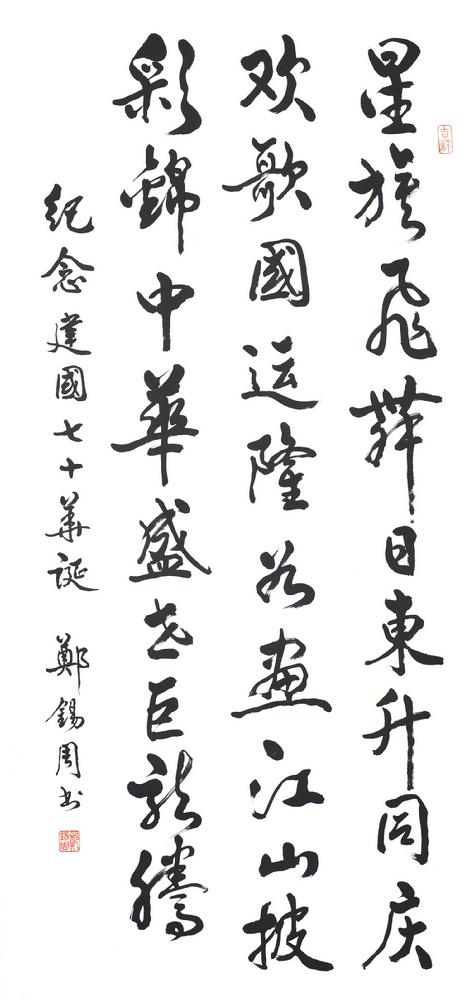 星旗飛舞日東升同庆
欢歌國运隆如画江山披
彩錦中華盛世巨龙騰
紀念建國七十華诞 鄭錫周书
吉祥